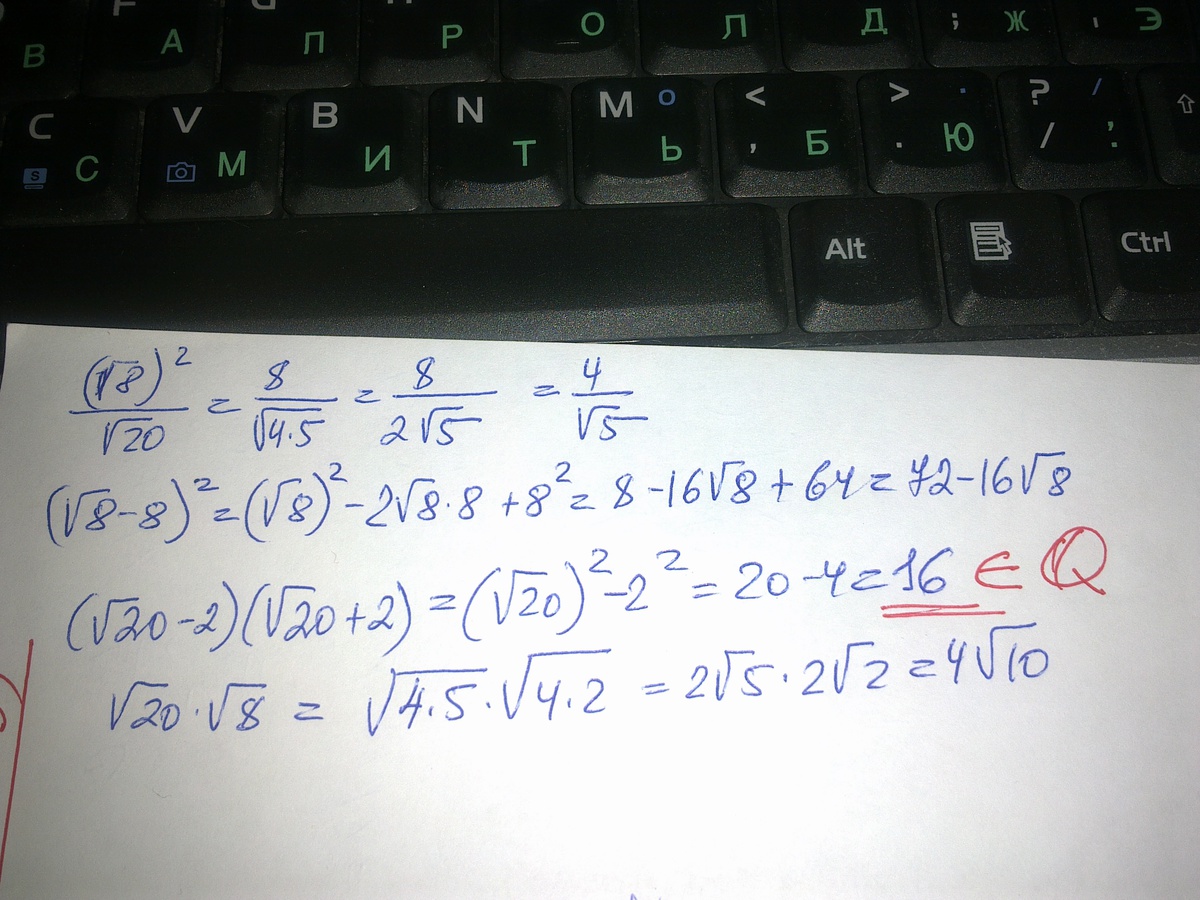 В А П Р О Л Д ; Ж Э
C С V М B И N Т M О Ь < , Б > . Ю ? / / ,
Alt Ctrl
(√8)² / √20 = 8 / √4·5 = 8 / 2√5 = 4 / √5
(√8-8)² = (√8)² - 2√8·8 + 8² = 8 - 16√8 + 64 = 72 - 16√8
(√20-2)(√20+2) = (√20)² - 2² = 20 - 4 = 16 ∈ ℚ
√20·√8 = √4·5·√4·2 = 2√5·2√2 = 4√10